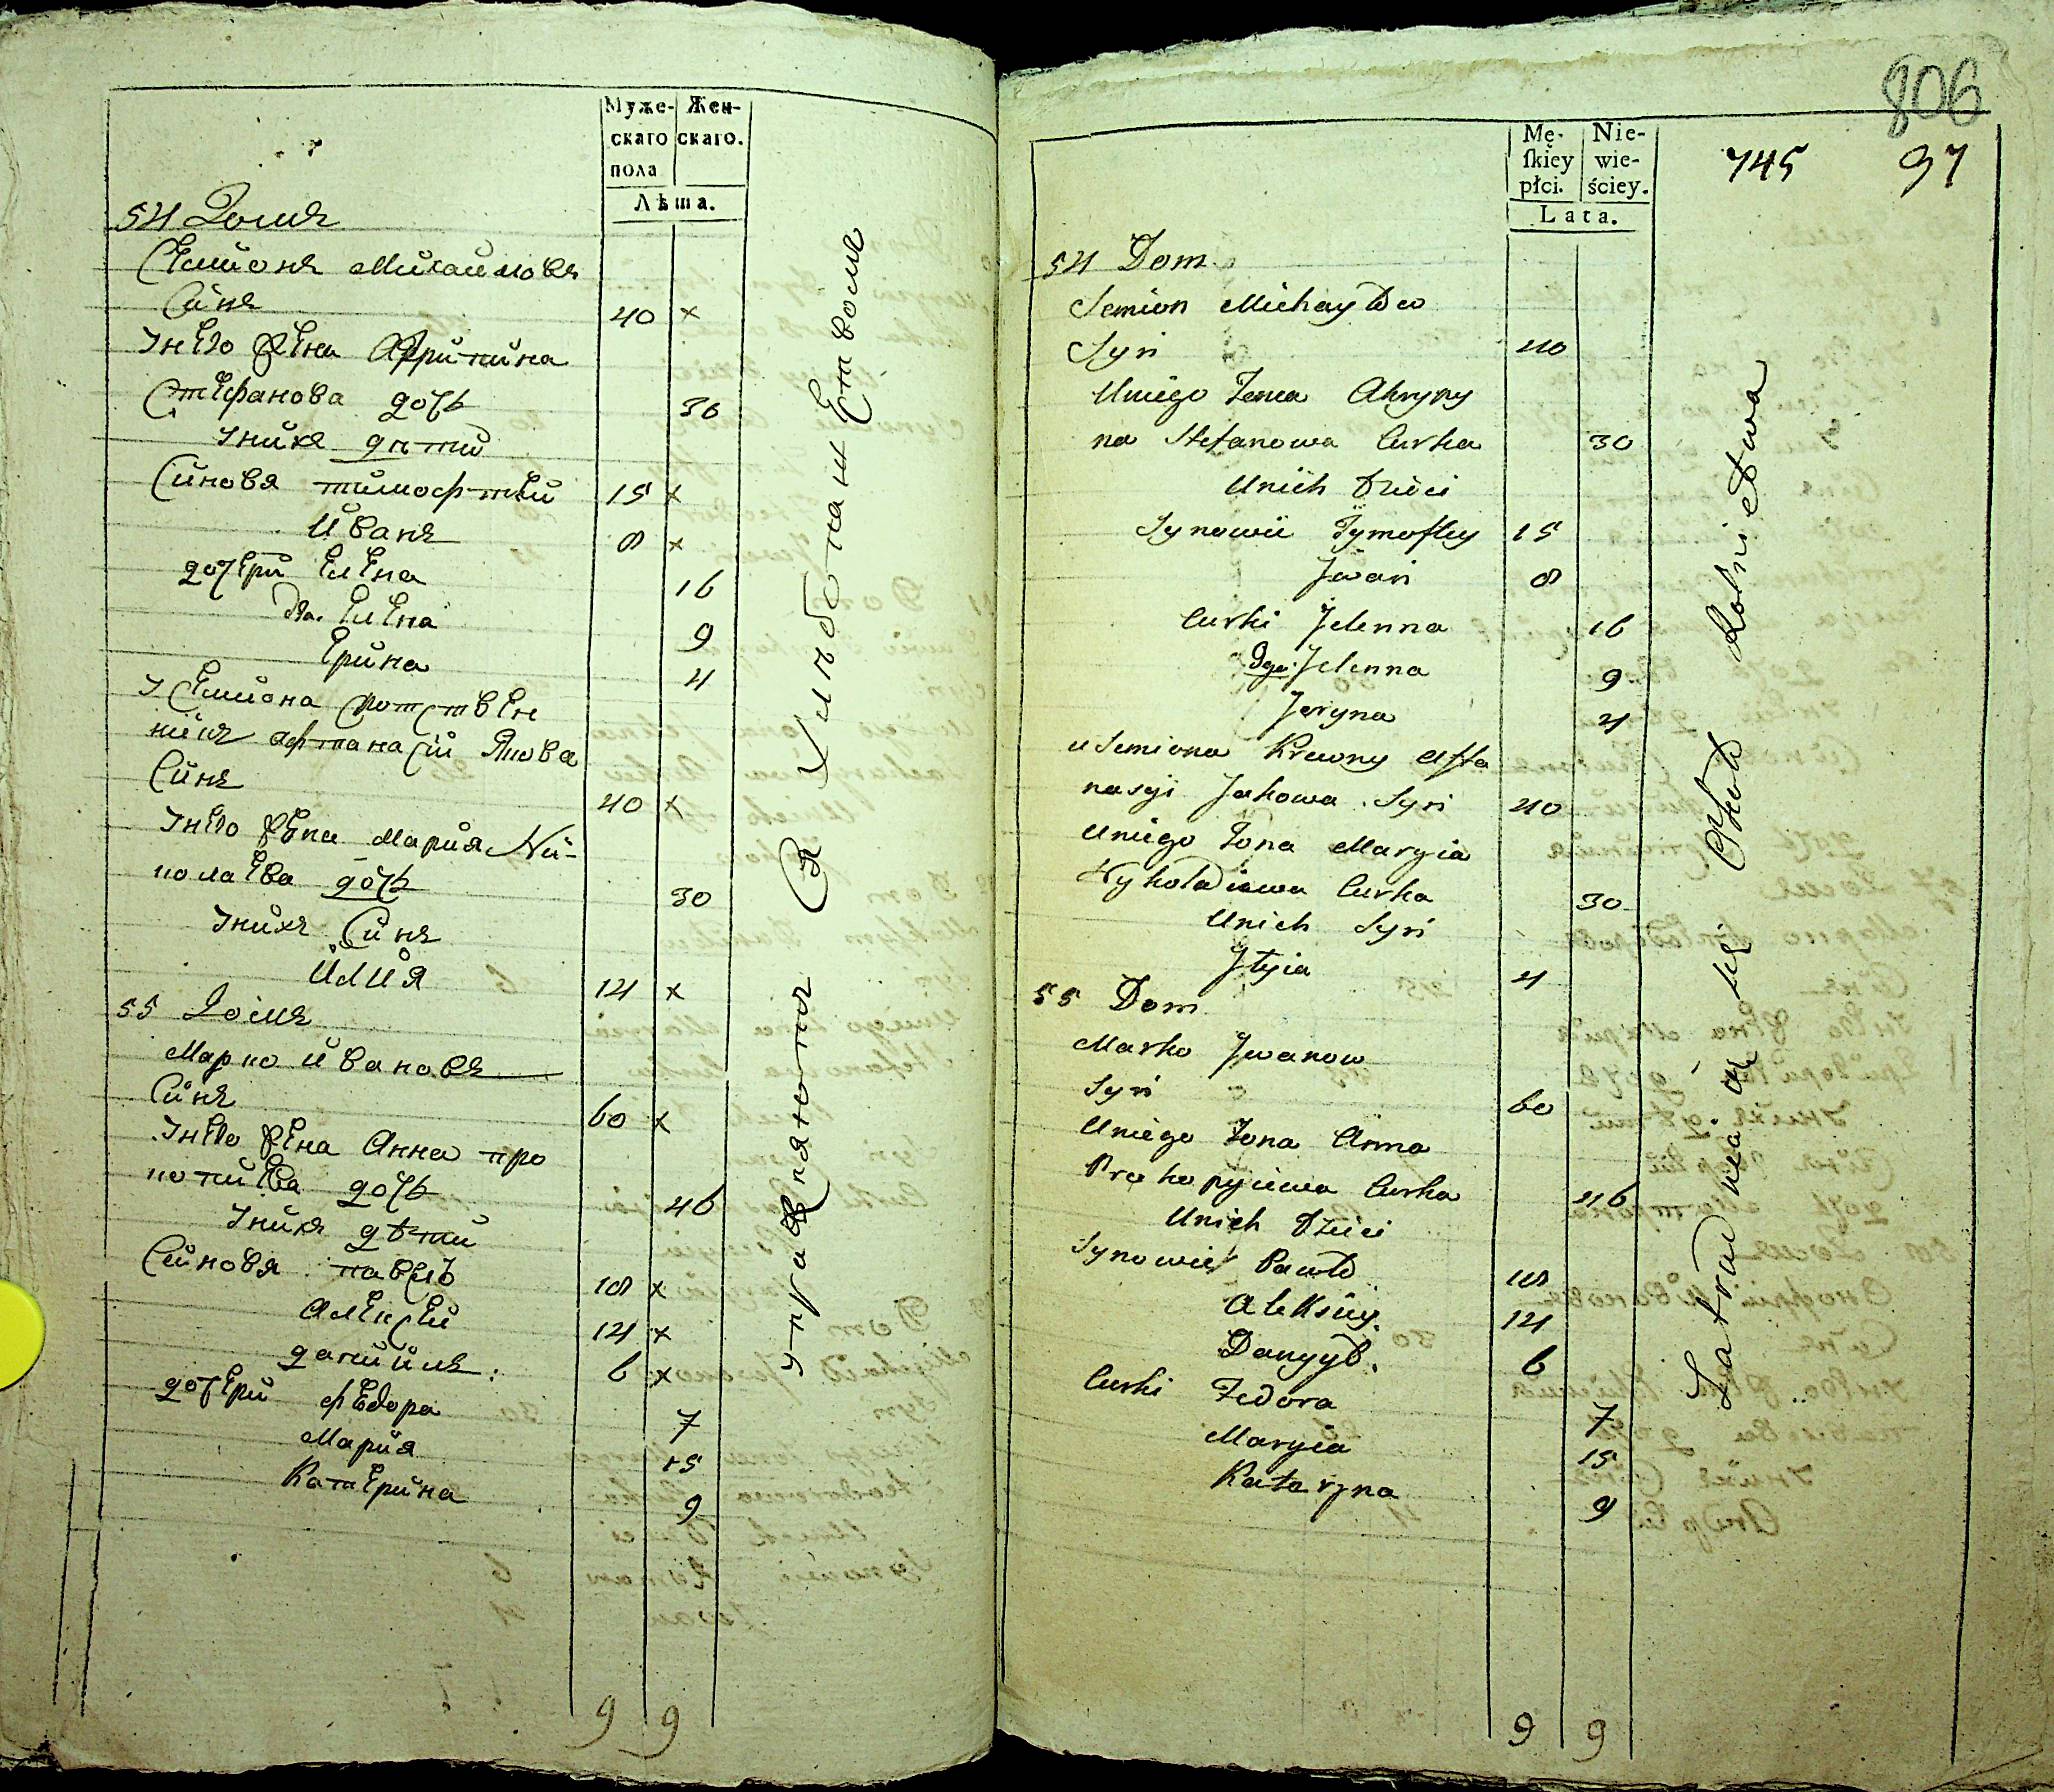 Муже- Жен-
скаго скаго.
пола
Лѣта.
54 Домъ
Семионъ Михайловъ
Синъ 40 x
Унего жена Агрипина
Стефанова дочь 30
Унихъ дѣти
Синовя тимофтей 15 x
Иванъ 8 x
дочери Елена 16
Дв. Елена 9
Ерина 4
У Семиона сротствен
никъ афтанасий Якова
Синъ 40 x
Унего жена Мария Ни-
колаева дочь 30
Унихъ Синъ
Илия 14 x
55 Домъ
Марко Ивановъ
Синъ 60 x
Унего жена Анна про
копиева дочь 46
Унихъ дѣти
Синовя павелъ 18 x
Алексей 14 x
даниилъ. 6 x
дочери федора 7
Мария 15
Катерина 9
9 9
упражняются Хлѣбопашеством
806
745 97
Mę- Nie-
skiey wie-
płci. ściey.
Lata.
54 Dom
Semion Michayłow
Syn 40
Uniego Zena Ahrypy
na Stefanowa Curka 30
Unich Dzieci
Synowii Tymoftey 15
Jwan 8
Curki Jelenna 16
Dga. Jelenna 9
Jeryna 4
u Semiona Krewny Afta
nasyi Jakowa Syn 40
Uniego Zona Maryia
Nykołaiewa Curka 30
Unich Syn
Jlyia 4
55 Dom
Marko Jwanow
Syn 60
Uniego Zona Anna
Prokopyiewa Curka 46
Unich Dzieci
Synowie Pawło 18
Aleksiey. 14
Danyył. 6
Curki Fedora 7
Maryia 15
Kataryna 9
9 9
Zatrudniaią się Około Rolnictwa